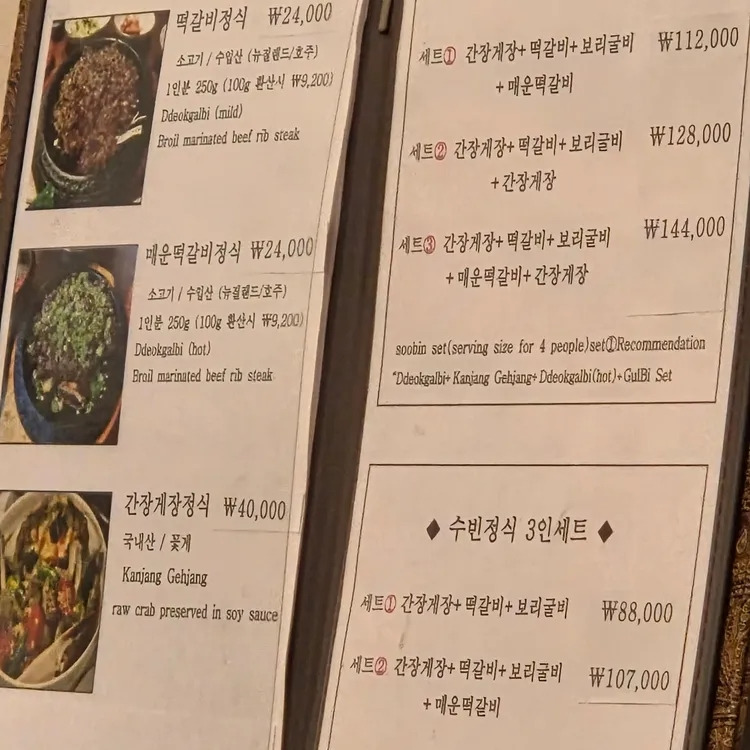 떡갈비정식 ₩24,000
소고기 / 수입산 (뉴질랜드/호주)
1인분 250g (100g 환산시 ₩9,200)
Ddeokgalbi (mild)
Broil marinated beef rib steak
매운떡갈비정식 ₩24,000
소고기 / 수입산 (뉴질랜드/호주)
1인분 250g (100g 환산시 ₩9,200)
Ddeokgalbi (hot)
Broil marinated beef rib steak
간장게장정식 ₩40,000
국내산 / 꽃게
Kanjang Gehjang
raw crab preserved in soy sauce
세트① 간장게장+떡갈비+보리굴비 ₩112,000
+매운떡갈비
세트② 간장게장+떡갈비+보리굴비 ₩128,000
+간장게장
세트③ 간장게장+떡갈비+보리굴비 ₩144,000
+매운떡갈비+간장게장
soobin set(serving size for 4 people)set①Recommendation
*Ddeokgalbi+Kanjang Gehjang+Ddeokgalbi(hot)+GulBi Set
◆ 수빈정식 3인세트 ◆
세트① 간장게장+떡갈비+보리굴비 ₩88,000
세트② 간장게장+떡갈비+보리굴비 ₩107,000
+매운떡갈비